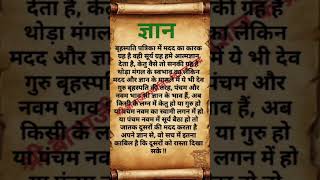 ज्ञान
बृहस्पति पत्रिका में मदद का कारक
ग्रह है वही सूर्य ग्रह हमे आत्मज्ञान
देता है, केतु वैसे तो सनकी ग्रह है
थोड़ा मंगल के स्वभाव का लेकिन
मदद और ज्ञान के मामले में ये भी देव
गुरु बृहस्पति की तरह, पंचम और
नवम भाव भी ज्ञान के भाव हैं, अब
किसी के लग्न में केतु हो या गुरु हो
या पंचम नवम का स्वामी लगन में हो
या पंचम नवम में सूर्य बैठा हो तो
जातक दूसरों की मदद करता है
अपने ज्ञान से, वो सच में इतना
काबिल है कि दूसरों को रास्ता दिखा
सके !!